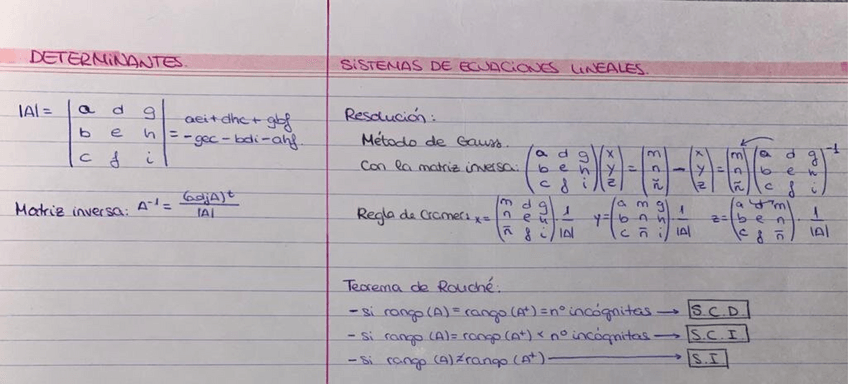 DETERMINANTES.
|A| = | a d g | aei + dhc + gbf
| b e h | = -gec - bdi - ahf
| c f i |
Matriz inversa: A⁻¹ = (adjA)ᵗ / |A|
SISTEMAS DE ECUACIONES LINEALES.
Resolución:
Método de Gauss.
Con la matriz inversa: (a d g / b e h / c f i) (x / y / z) = (m / n / ñ) → (x / y / z) = (m / n / ñ) (a d g / b e h / c f i)⁻¹
Regla de Cramer: x = (m d g / n e h / ñ f i) · 1/|A| y = (a m g / b n h / c ñ i) · 1/|A| z = (a d m / b e n / c f ñ) · 1/|A|
Teorema de Rouché:
- si rango (A) = rango (A⁺) = nº incógnitas → S.C.D.
- si rango (A) = rango (A⁺) < nº incógnitas → S.C.I
- si rango (A) ≠ rango (A⁺) → S.I